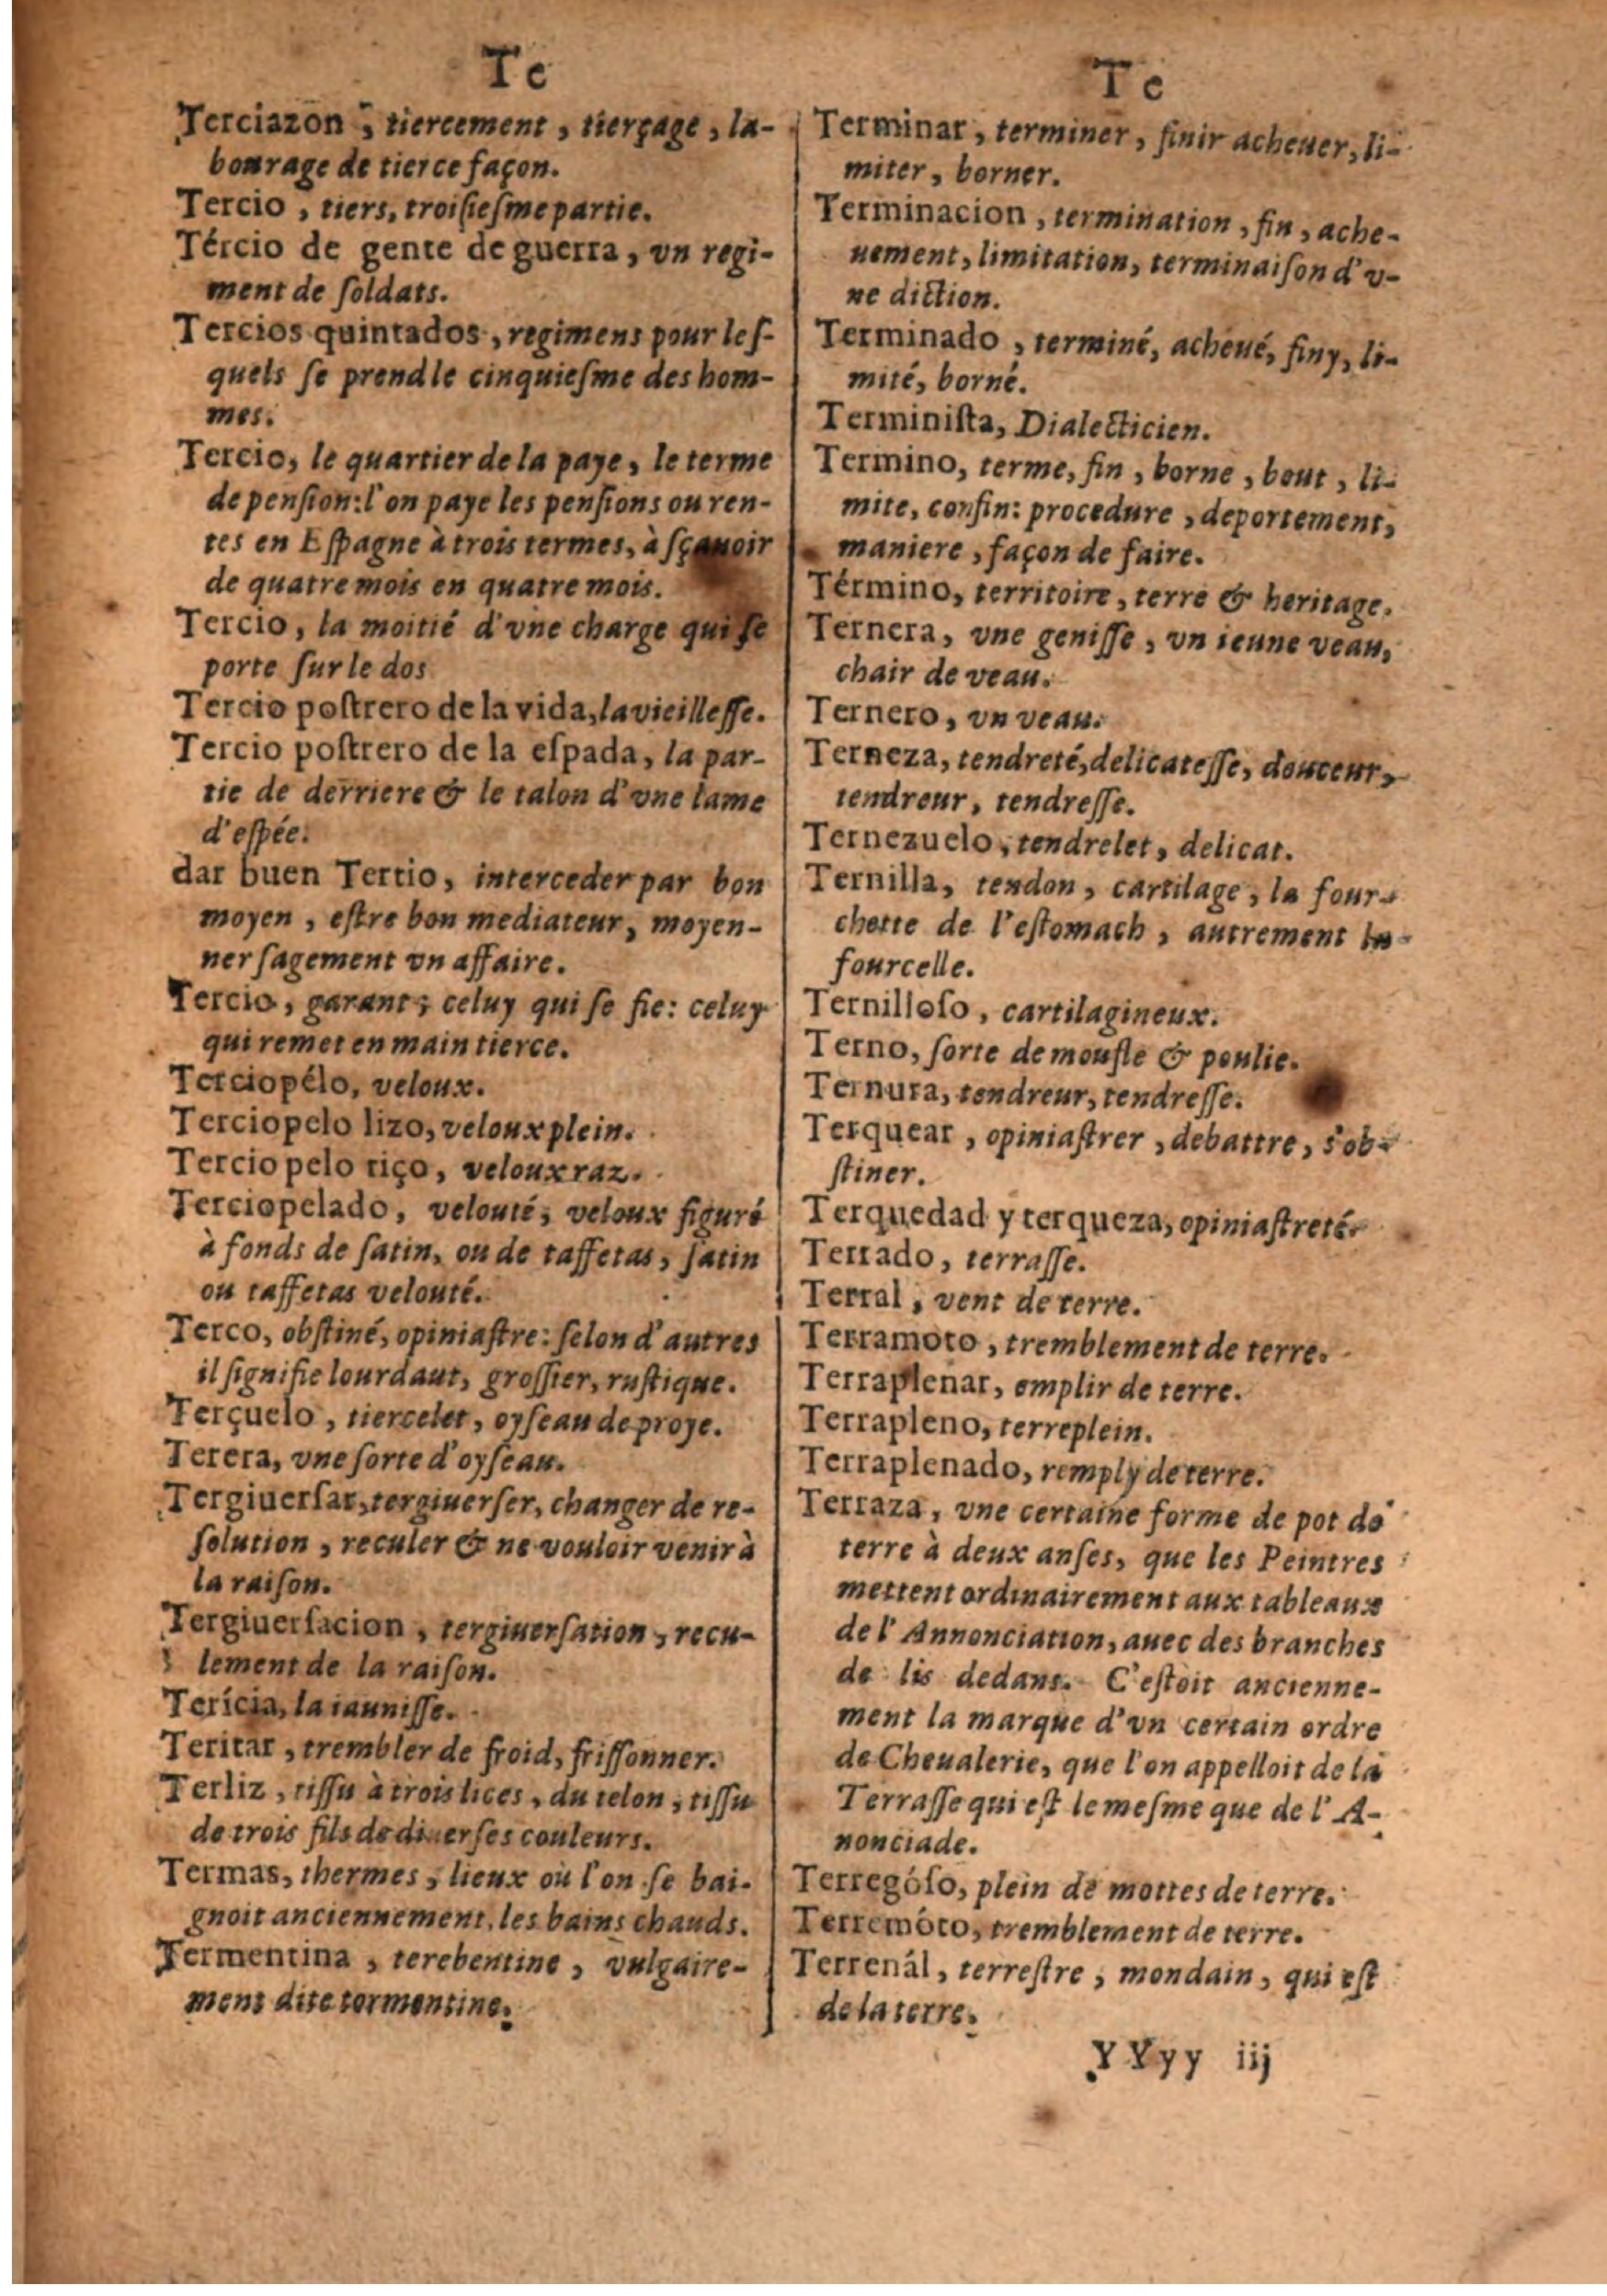 Te
Terciazon, tiercement, tierçage, la-
bourage de tierce façon.
Tercio, tiers, troiſieſme partie.
Tércio de gente de guerra, vn regi-
ment de ſoldats.
Tercios quintados, regimens pour leſ-
quels ſe prend le cinquieſme des hom-
mes.
Tercio, le quartier de la paye, le terme
de penſion: l'on paye les penſions ou ren-
tes en Eſpagne à trois termes, à ſçauoir
de quatre mois en quatre mois.
Tercio, la moitié d'vne charge qui ſe
porte ſur le dos
Tercio poſtrero de la vida, la vieilleſſe.
Tercio poſtrero de la eſpada, la par-
tie de derriere & le talon d'vne lame
d'eſpée.
dar buen Tertio, interceder par bon
moyen, eſtre bon mediateur, moyen-
ner ſagement vn affaire.
Tercio, garant; celuy qui ſe fie: celuy
qui remet en main tierce.
Terciopélo, veloux.
Terciopelo lizo, veloux plein.
Terciopelo riço, veloux raz.
Terciopelado, velouté, veloux figuré
à fonds de ſatin, ou de taffetas, ſatin
ou taffetas velouté.
Terco, obſtiné, opiniaſtre: ſelon d'autres
il ſignifie lourdaut, groſſier, ruſtique.
Terçuelo, tiercelet, oyſeau de proye.
Terera, vne ſorte d'oyſeau.
Tergiuerſar, tergiuerſer, changer de re-
ſolution, reculer & ne vouloir venir à
la raiſon.
Tergiuerſacion, tergiuerſation, recu-
lement de la raiſon.
Terícia, la iauniſſe.
Teritar, trembler de froid, friſſonner.
Terliz, tiſſu à trois lices, du telon, tiſſu
de trois fils de diuerſes couleurs.
Termas, thermes, lieux où l'on ſe bai-
gnoit anciennement, les bains chauds.
Termentina, terebentine, vulgaire-
ment dite tormentine.
Te
Terminar, terminer, finir acheuer, li-
miter, borner.
Terminacion, termination, fin, ache-
uement, limitation, terminaiſon d'v-
ne diction.
Terminado, terminé, acheué, finy, li-
mité, borné.
Terminiſta, Dialecticien.
Termino, terme, fin, borne, bout, li-
mite, confin: procedure, deportement,
maniere, façon de faire.
Término, territoire, terre & heritage.
Ternera, vne geniſſe, vn ieune veau,
chair de veau.
Ternero, vn veau.
Terneza, tendreté, delicateſſe, douceur,
tendreur, tendreſſe.
Ternezuelo, tendrelet, delicat.
Ternilla, tendon, cartilage, la four-
chette de l'eſtomach, autrement la
fourcelle.
Ternilloſo, cartilagineux.
Terno, ſorte de moufle & poulie.
Ternura, tendreur, tendreſſe.
Terquear, opiniaſtrer, debattre, s'ob-
ſtiner.
Terquedad y terqueza, opiniaſtreté.
Terrado, terraſſe.
Terral, vent de terre.
Terramoto, tremblement de terre.
Terraplenar, emplir de terre.
Terrapleno, terreplein.
Terraplenado, remply de terre.
Terraza, vne certaine forme de pot de
terre à deux anſes, que les Peintres
mettent ordinairement aux tableaux
de l'Annonciation, auec des branches
de lis dedans. C'eſtoit ancienne-
ment la marque d'vn certain ordre
de Cheualerie, que l'on appelloit de la
Terraſſe qui eſt le meſme que de l'A-
nonciade.
Terregóſo, plein de mottes de terre.
Terremóto, tremblement de terre.
Terrenál, terreſtre, mondain, qui eſt
de la terre.
YYyy iij